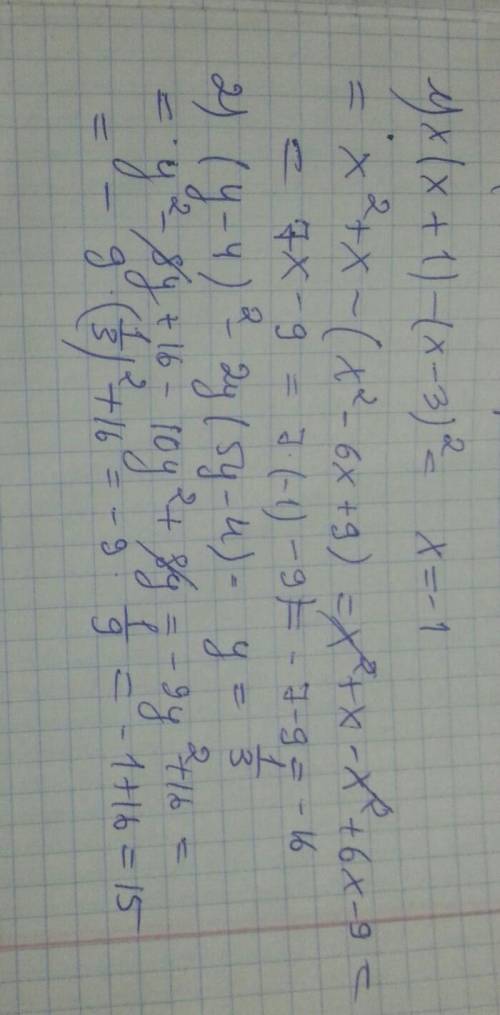 1) x(x+1)-(x-3)²= x=-1
= x²+x-(x²-6x+9)=x²+x-x²+6x-9=
= 7x-9=7·(-1)-9)=-7-9=-16
2) (y-4)²-2y(5y-4)= y=1/3
= y²-8y+16-10y²+8y=-9y²+16=
= -9·(1/3)²+16=-9·1/9=-1+16=15